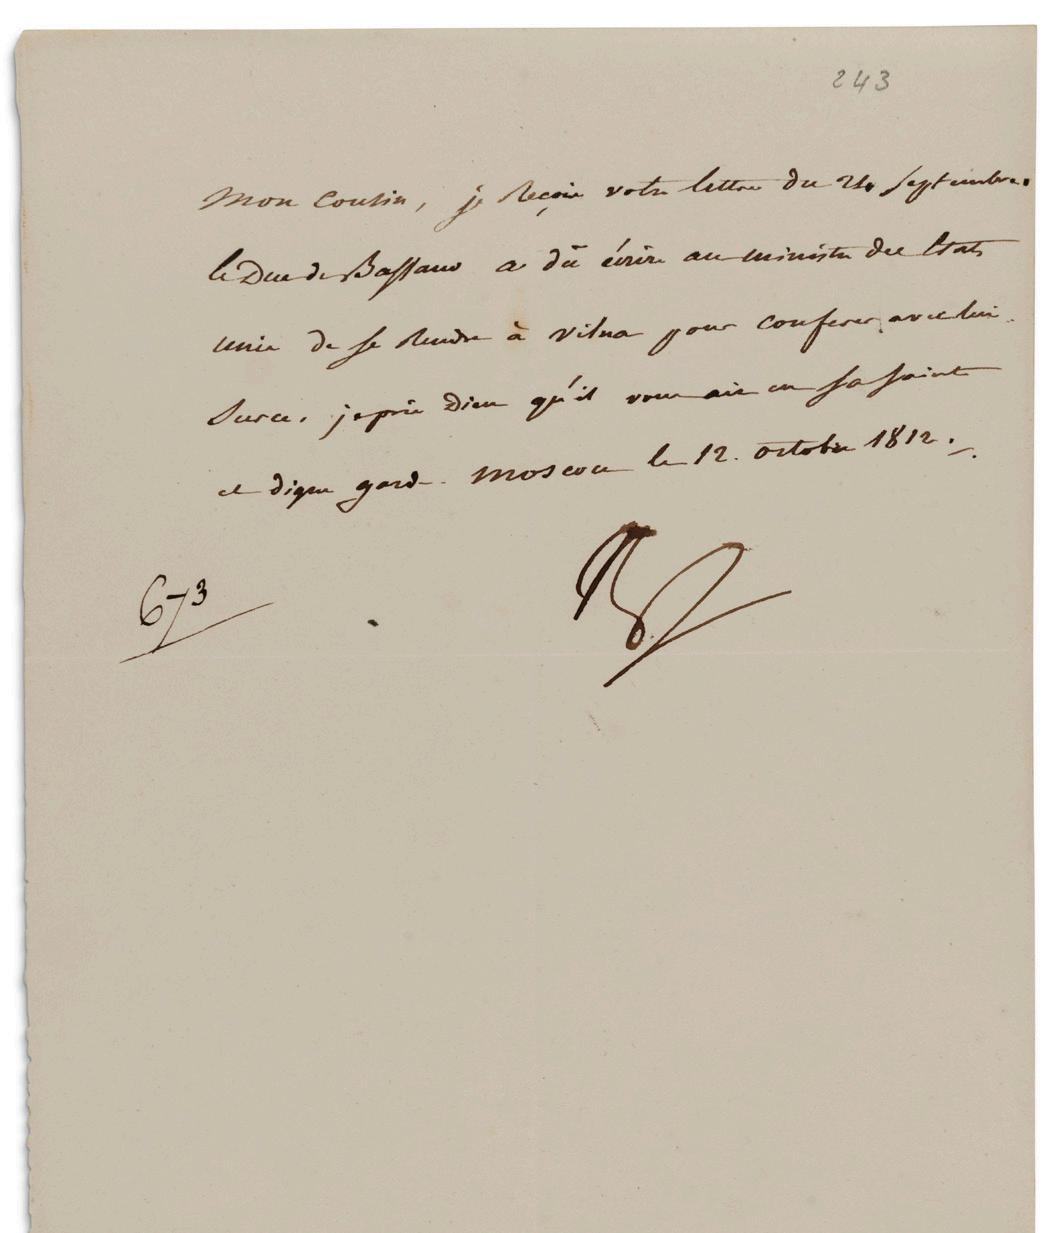 243
Mon Cousin, je reçois votre lettre du 24 Septembre.
le Duc de Bassano a dû écrire au ministre des Etats
unis de se rendre à Vilna pour conferer avec lui.
Sur ce, je prie Dieu qu'il vous ait en sa sainte
et digne garde. Moscou le 12. octobre 1812.
673